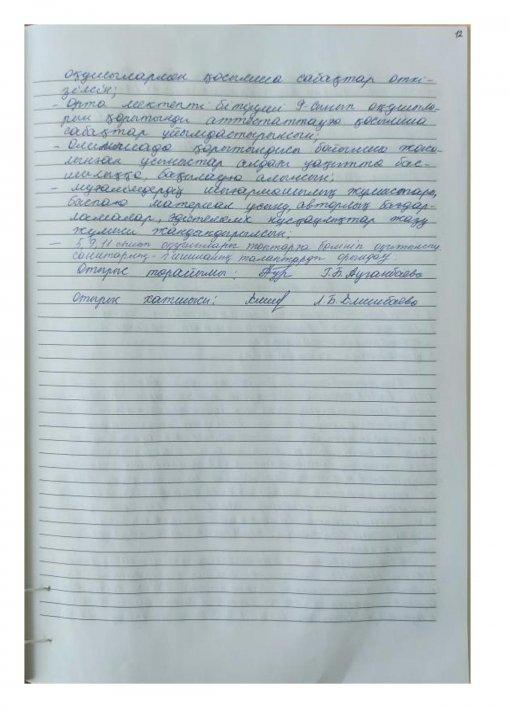 12
оқушылармен қосымша сабақтар өткі-
зілсін;
- Орта мектепті бітіруші 9 сынып оқушыла-
рын қорытынды аттестаттауға қосымша
сабақтар ұйымдастырылсын;
- Олимпиада қорытындысы бойынша жаса-
лынған ұсыныстар алдағы уақытта бас-
шылыққа, бақылауға алынсын;
- мұғалімдердің шығармашылық жұмыстары,
баспаға материал ұсыну, авторлық бағдар-
ламалар, әдістемелік нұсқаулықтар жазу
жұмысы жандандырылсын;
- 5, 9, 11 сынып оқушыларын топтарға бөлініп оқытылу
санитарлық талаптарды орындау.
Отырыс төрайымы: Г.Б.Ауганбаева
Отырыс хатшысы: Л.Б.Алшибаева